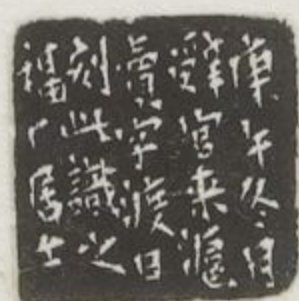 庚午冬月
辤官来滬
賣字渡日
刻此識之
福厂居士